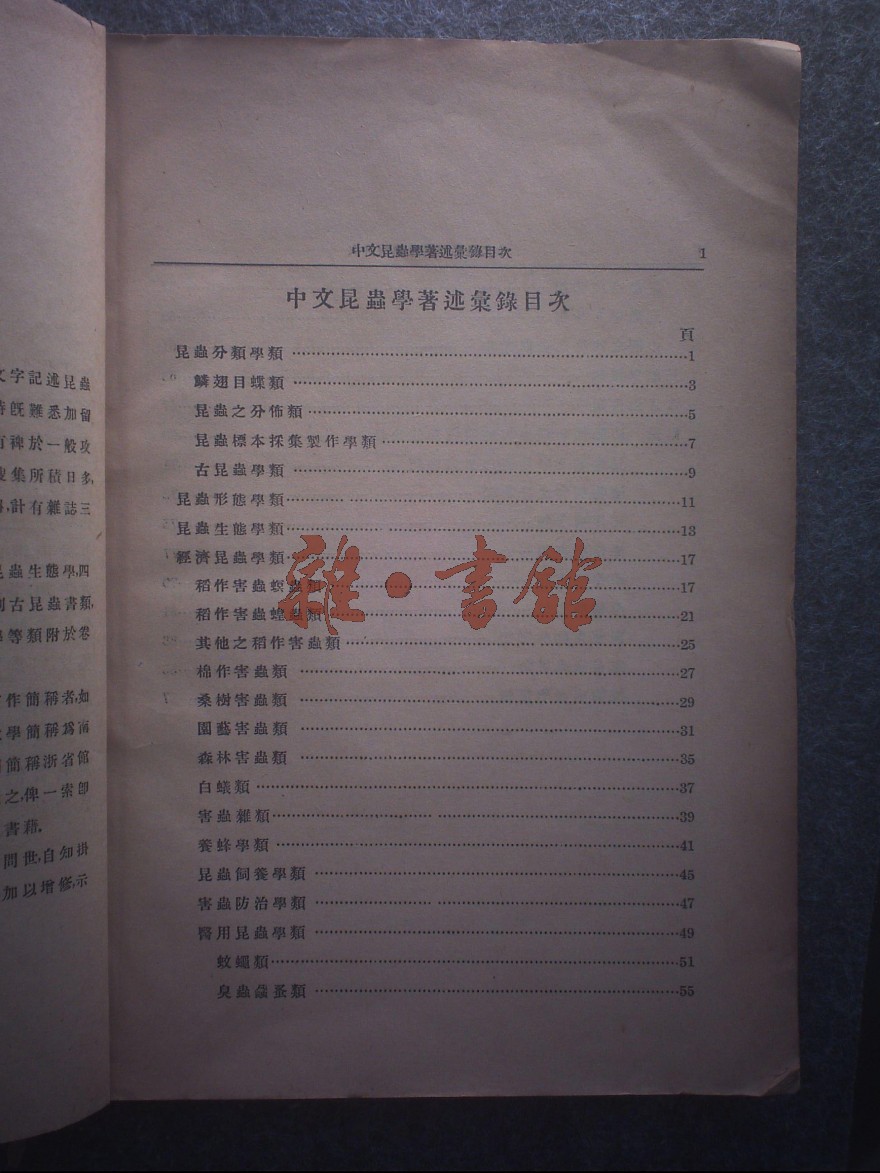 中文昆蟲學著述彙錄目次 1
中文昆蟲學著述彙錄目次
頁
昆蟲分類學類 1
鱗翅目蝶類 3
昆蟲之分佈類 5
昆蟲標本採集製作學類 7
古昆蟲學類 9
昆蟲形態學類 11
昆蟲生態學類 13
經濟昆蟲學類 17
稻作害蟲螟蟲類 17
稻作害蟲蝗蟲類 21
其他之稻作害蟲類 25
棉作害蟲類 27
桑樹害蟲類 29
園藝害蟲類 31
森林害蟲類 35
白蟻類 37
害蟲雜類 39
養蜂學類 41
昆蟲飼養學類 45
害蟲防治學類 47
醫用昆蟲學類 49
蚊蠅類 51
臭蟲蝨蚤類 55
雜·書館
文字記述昆蟲
時旣難悉加留
有裨於一般攻
集所積日多,
計有雜誌三
昆蟲生態學,四
列古昆蟲書類,
等類附於卷
作簡稱者,如
學簡稱爲南
簡稱浙省館
之,俾一索卽
書藉.
問世,自知掛
加以增修,示